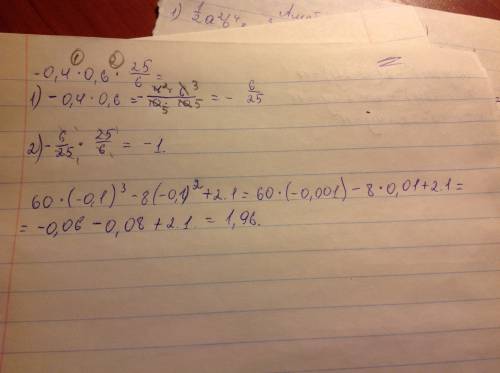 1) 1/2 a²b⁴.
① ②
-0,4·0,6·25/6=
1) -0,4·0,6 = -4²·6³/10₅·10₅ = -6/25
2) -6/25·25/6 = -1.
60·(-0,1)³-8(-0,1)²+2.1=60·(-0,001)-8·0,01+2.1=
= -0,06-0,08+2.1. = 1,96.